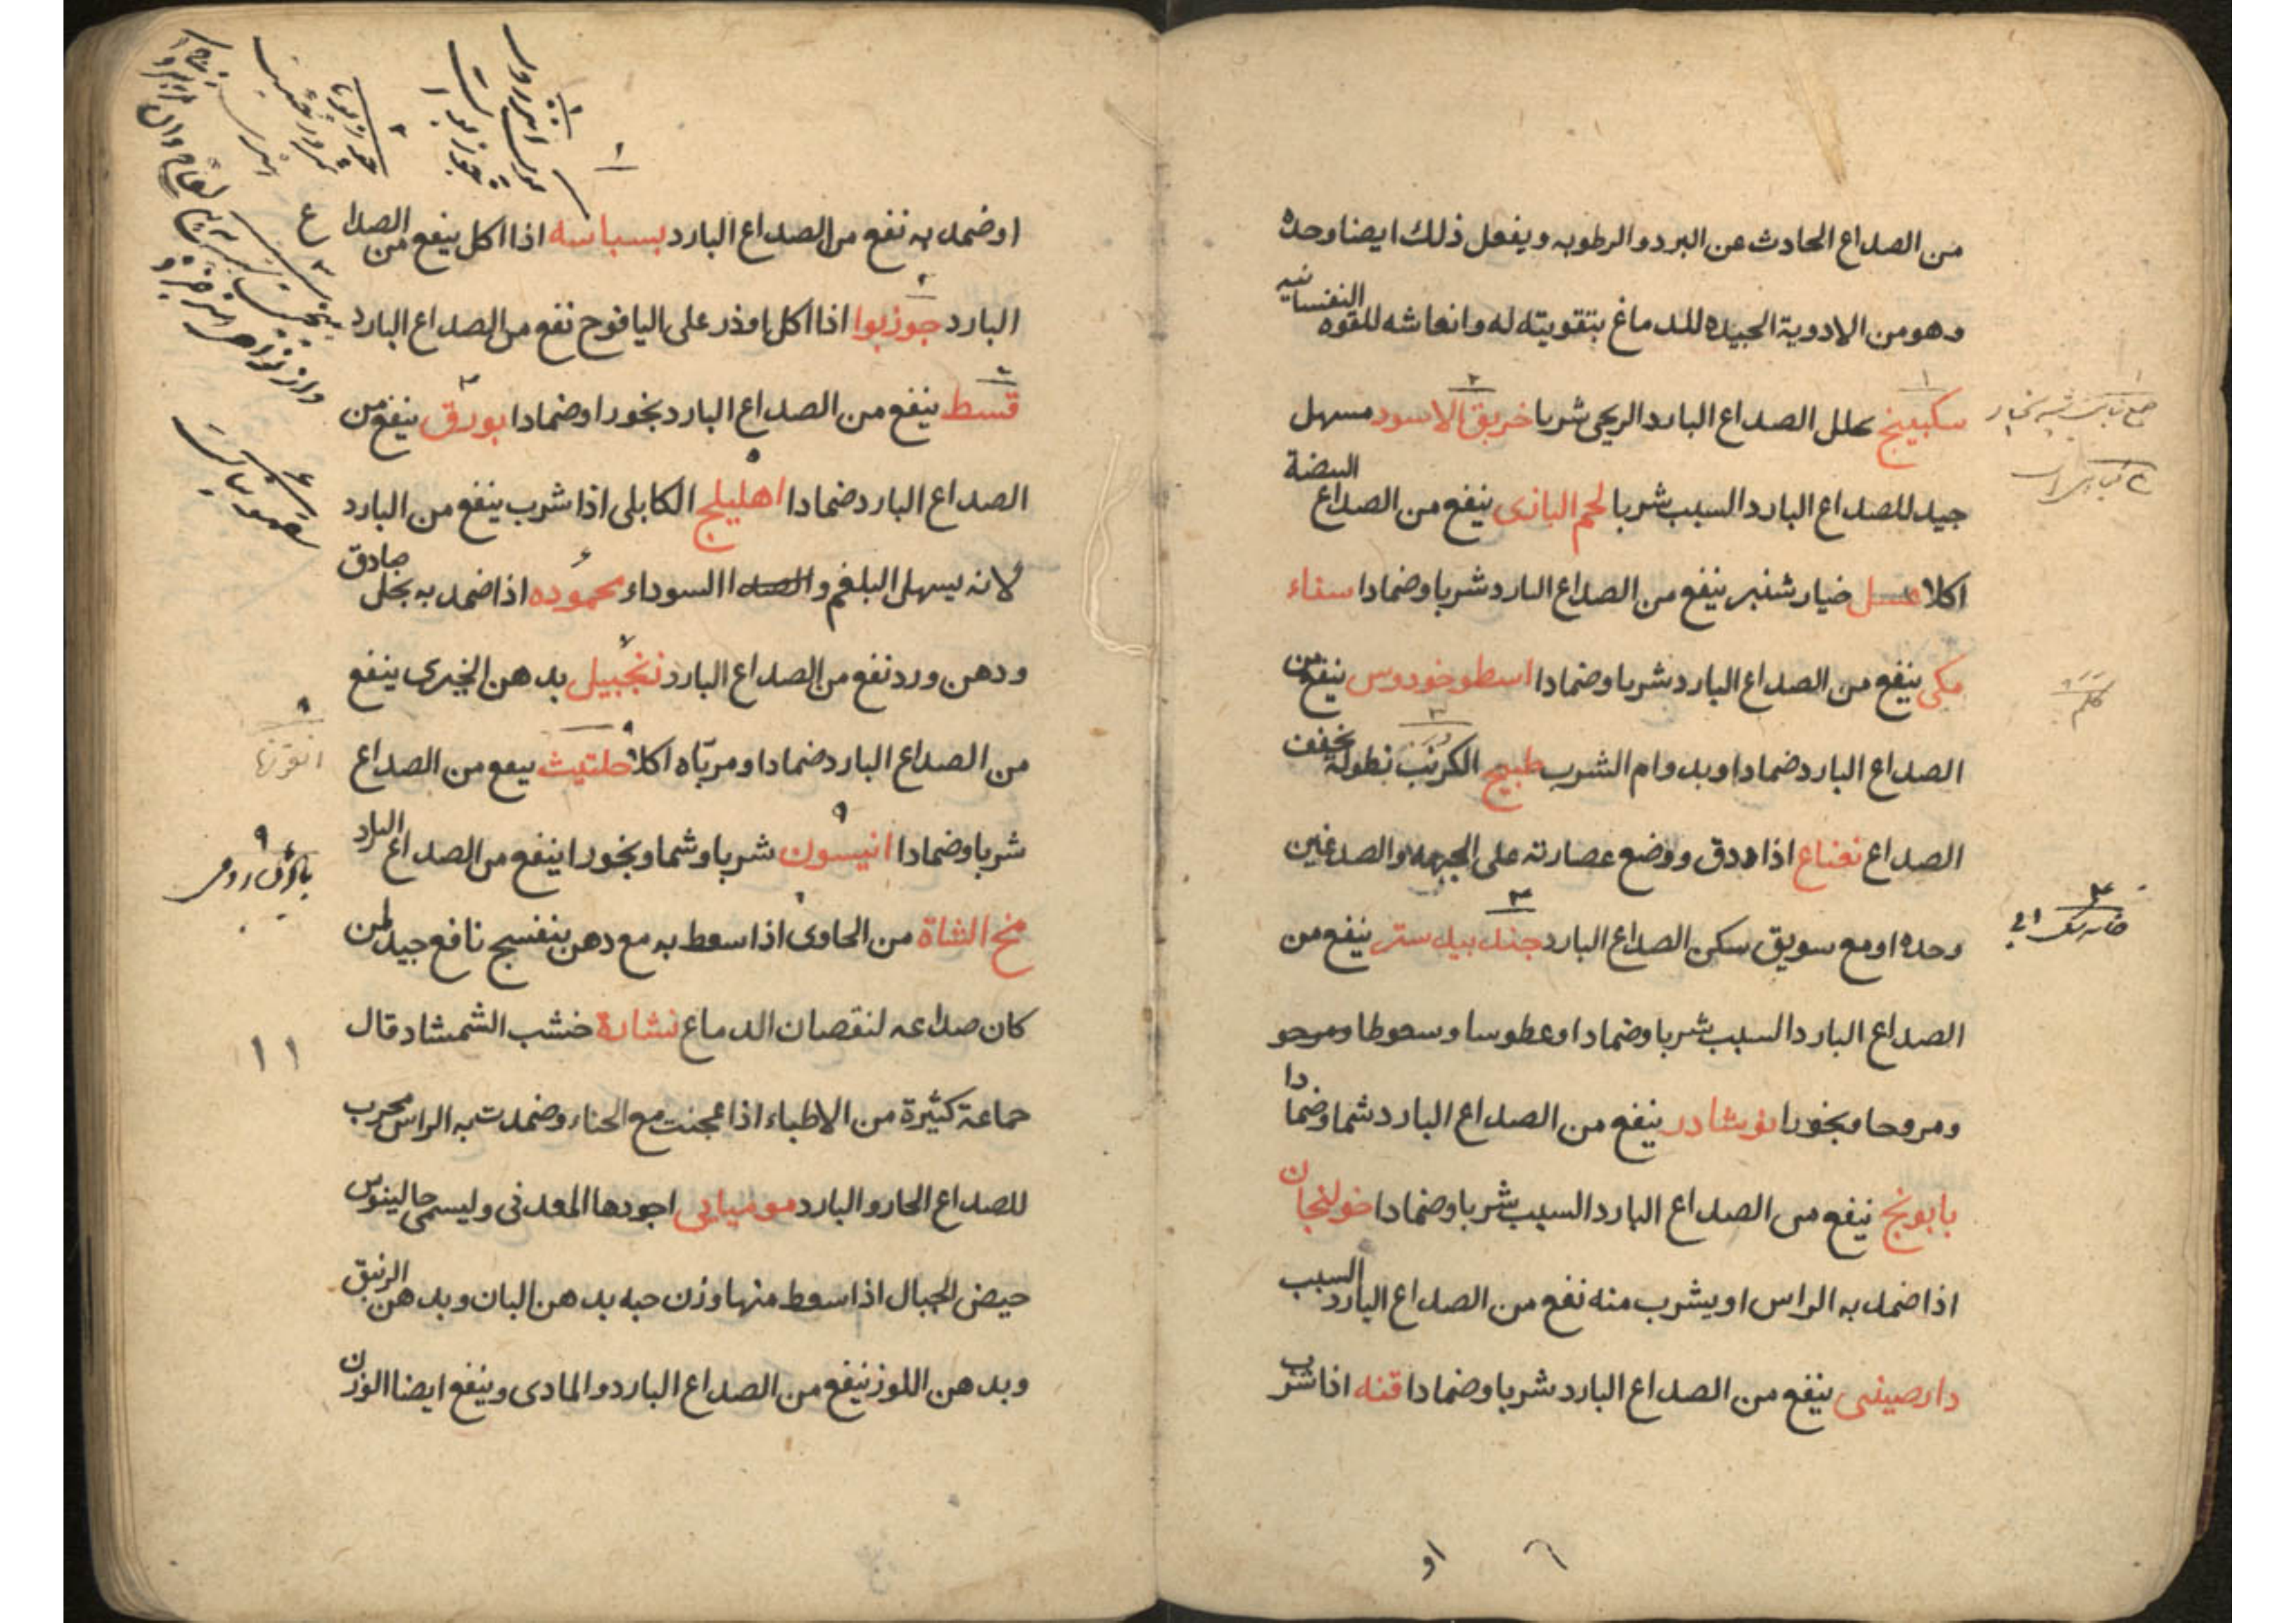 من الصداع الحادث عن البرد والرطوبه ويفعل ذلك ايضا وحده
وهو من الادوية الجيده للدماغ بتقويته له وانعاشه للقوه النفسانيه
سكبينج يحلل الصداع البارد الريحى شربا خربق الاسود مسهل
جيد للصداع البارد السبب شربا لحم البازى ينفع من الصداع البيضة
اكلا عسل خيار شنبر ينفع من الصداع البارد شربا وضمادا سناء
مكى ينفع من الصداع البارد شربا وضمادا اسطوخودوس ينفع من
الصداع البارد ضمادا وبدوام الشرب طبيخ الكرنب نطوله يخفف
الصداع نعناع اذا دق ووضع عصارته على الجبهه والصدغين
وحده او مع سويق سكن الصداع البارد جندبيدستر ينفع من
الصداع البارد السبب شربا وضمادا وعطوسا وسعوطا ومرحو
ومروحا وبخورا نوشادر ينفع من الصداع البارد شما وضمادا
بابونج ينفع من الصداع البارد السبب شربا وضمادا خولنجان
اذا ضمد به الراس او يشرب منه نفع من الصداع البارد السبب
دارصينى ينفع من الصداع البارد شربا وضمادا قنه اذا شرب
او
او ضمد به نفع من الصداع البارد بسباسه اذا اكل ينفع من الصداع
البارد جوزبوا اذا اكل او ذر على اليافوح نفع من الصداع البارد
قسط ينفع من الصداع البارد بخورا وضمادا بورق ينفع من
الصداع البارد ضمادا اهليلج الكابلى اذا شرب ينفع من البارد
لانه يسهل البلغم والصدا السوداء محموده اذا ضمد به بخل حاذق
ودهن ورد نفع من الصداع البارد زنجبيل بدهن الخيرى ينفع
من الصداع البارد ضمادا ومرباه اكلا حلتيث ينفع من الصداع
شربا وضمادا انيسون شربا وشما وبخورا ينفع من الصداع البارد
مخ الشاة من الحاوى اذا سعط به مع دهن بنفسج نافع جيد لمن
كان صداعه لنقصان الدماغ نشارة خشب الشمشاد قال
جماعة كثيرة من الاطباء اذا عجنت مع الحناء وضمدت به الراس مجرب
للصداع الحار والبارد موميايى اجودها المعدنى وليسمى جالينوس
حيض الجبال اذا سعط منها وزن حبه بدهن البان وبدهن الزنبق
وبدهن اللوز ينفع من الصداع البارد والمادى وينفع ايضا الوزن
٩
١١